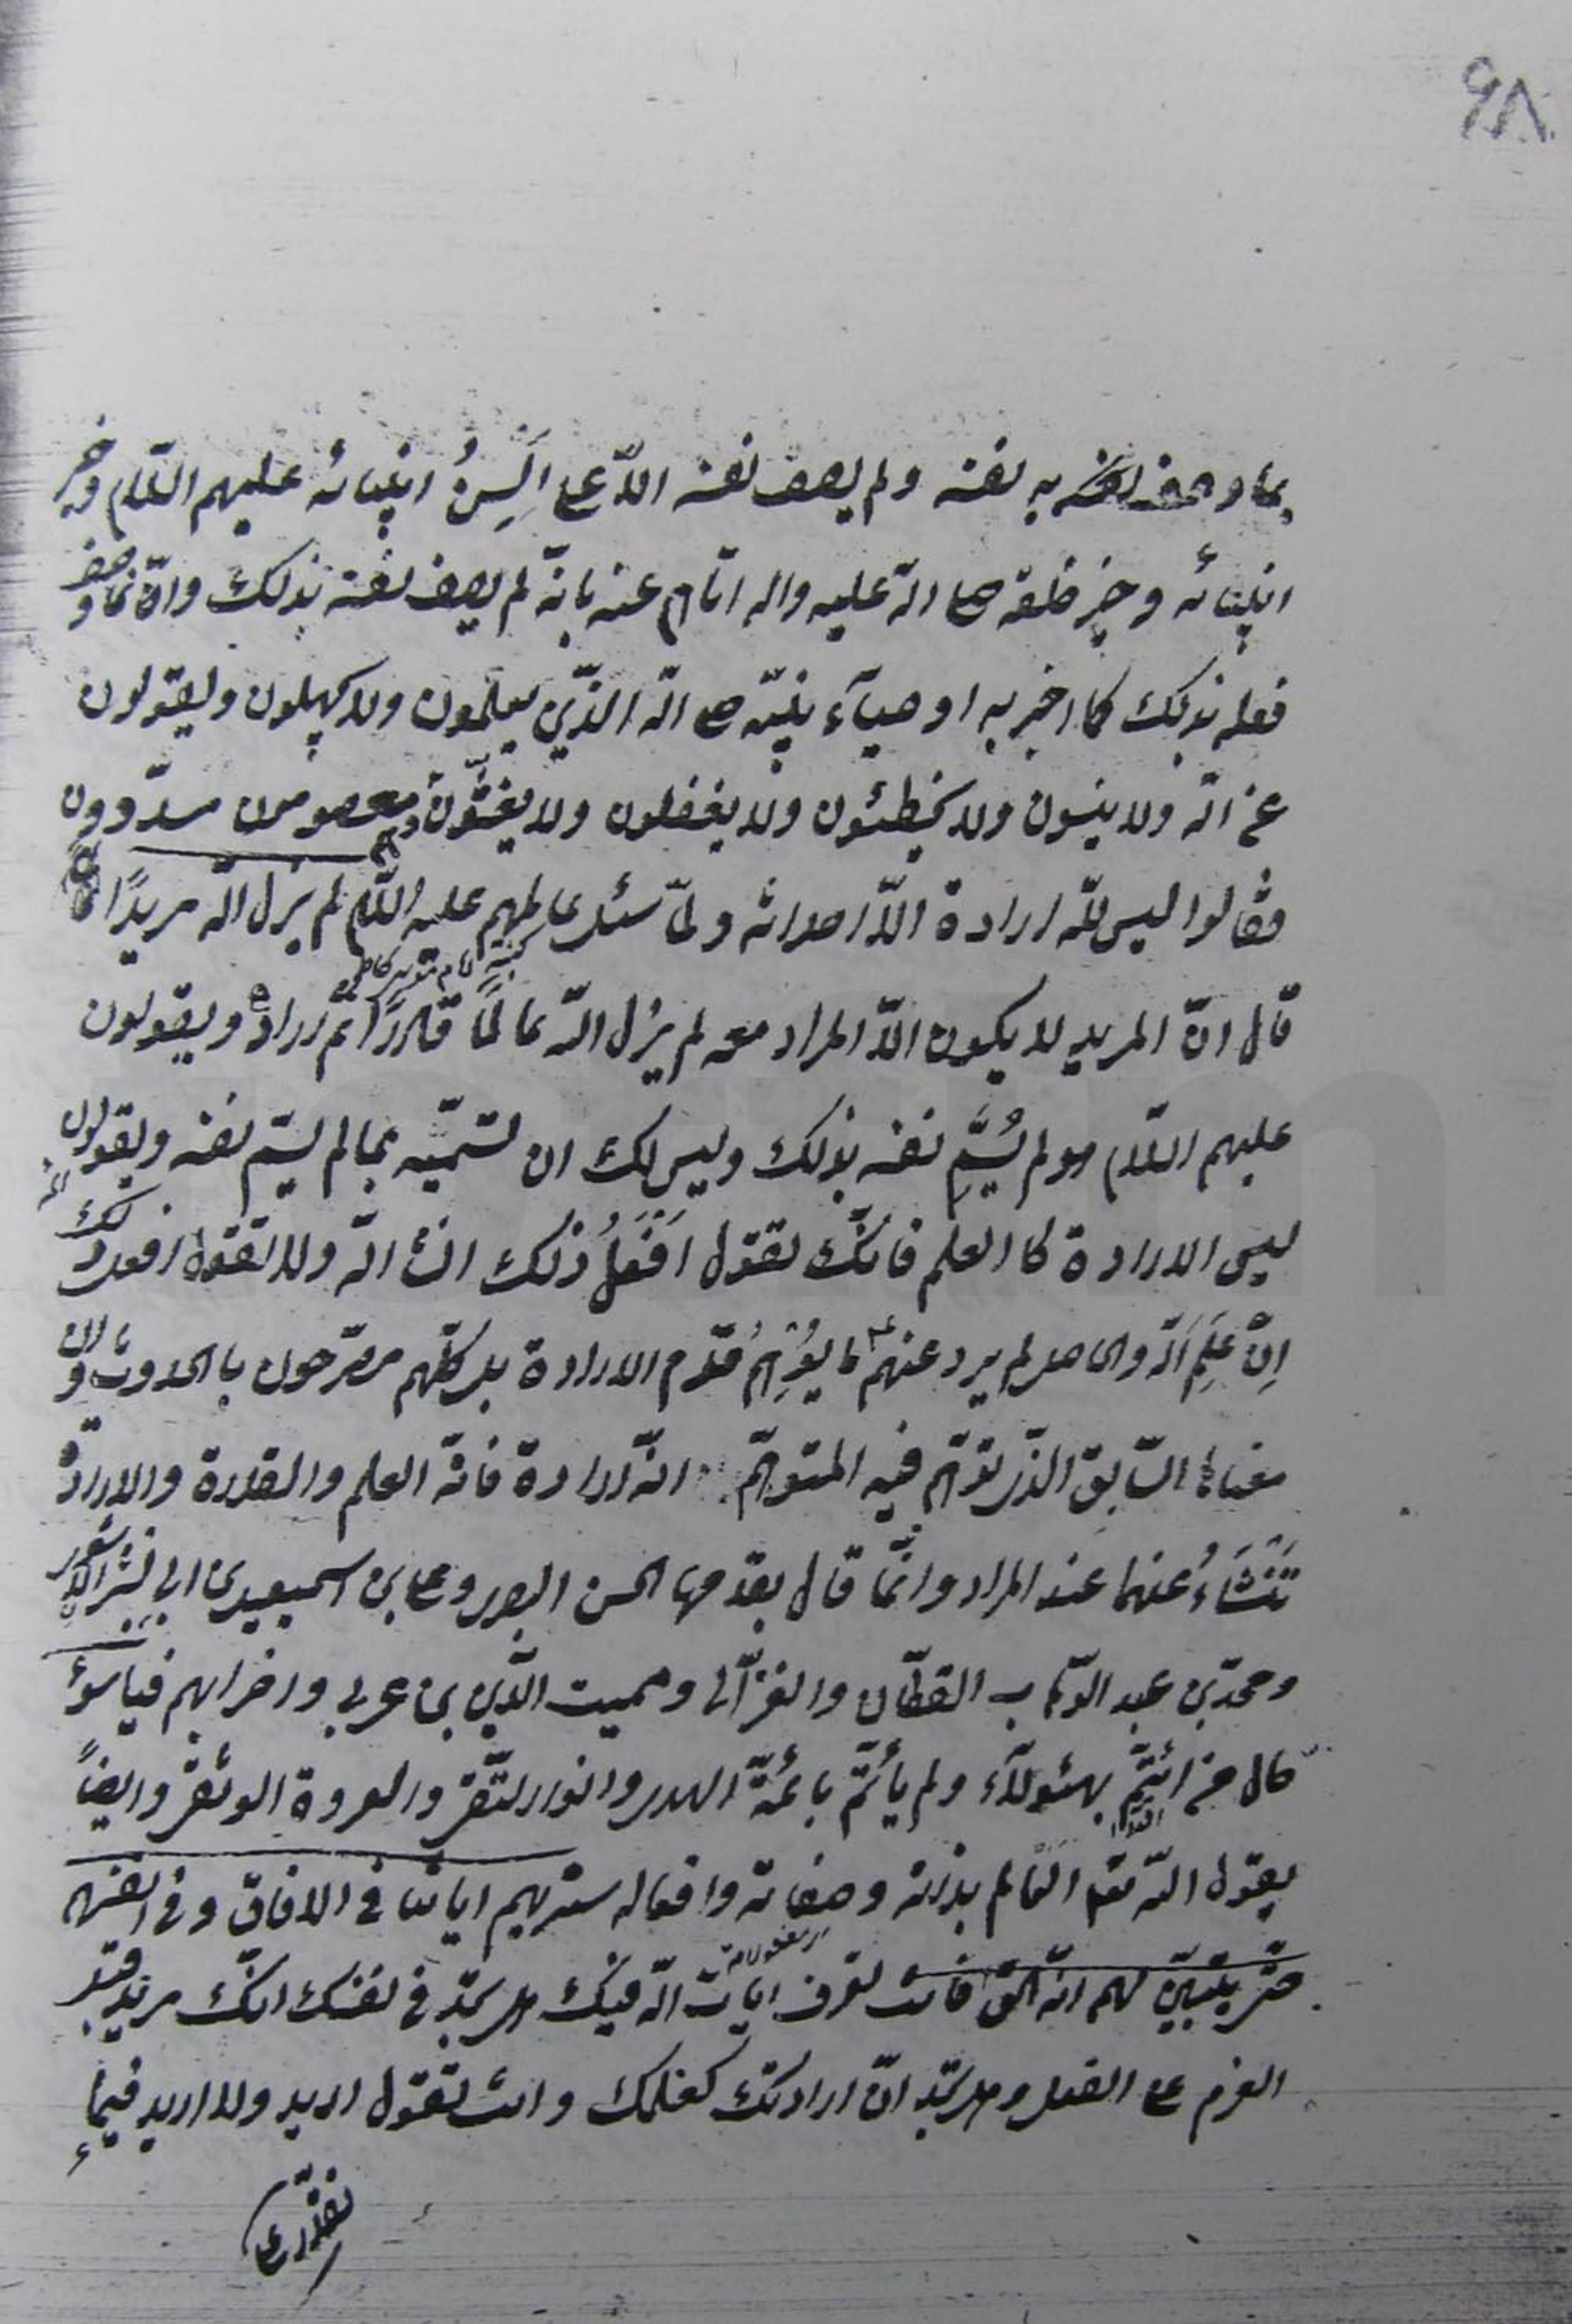 ٩٨
بما وصف به نفسه ولم يصف نفسه الّا على اَلْسِنُ انبيائه عليهم السّلام وخير
انبيائه وخير خلقه صلى الله عليه واله اتاهم عنه بانّه لم يصف نفسه بذلك وانّما وصف
فعله بذلك كما اخبر به اوصيآء نبيّه صلى الله الذّين يعلمون ولا يجهلون ويقولون
عن الله ولا ينسون ولا يخطئون ولا يغفلون ولا يغشّون وهم معصومون مسدّدون
فقالوا ليس للّه ارادة الّا احداثه ولمّا سئل عالمهم عليه السّلام لم يزل الله مريدًا
كنية امام موسى كاظم
قال انّ المريد لا يكون الّا المراد معه لم يزل الله عالمًا قادرًا ثم اراد ويقولون
عليهم السّلام هو لم يُسَمِّ نفسه بذلك وليس لك ان تسمّيه بما لم يسم نفسه ويقولون
ليس الارادة كا العلم فانّك تقول اَفْعَلُ ذلك انشاء الله ولا تقول افعل ذلك
اِنْ عَلِمَ اَللّه والحاصل لم يرد عنهم ع ما يُوْهِمُ قدم الارادة بل كلّهم مصرّحون بالحدوث وان
معناها السّابق الذّى توهّم فيه المتوهّم انّه ارادة فانّه العلم والقدرة والارادة
تَنْشَاءُ عنهما عند المراد وانّما قال بقدمها الحسن البصرى وعلى بن اسمعيل بن ابى بشر الاشعرى
ومحمّد بن عبد الوّهاب القطّان والغزّالى ومميت الدّين بن عربى واضرابهم فياسوء
حال من ائتمّ بهئولآء ولم يأتمّ بائمّة الهدى وانوار التّقى والعروة الوثقى وايضاً
يقول الله تعالى العالم بذاته وصفاته وافعاله سنريهم اياتنا فى الافاق وفى انفسهم
حتّى يتبيّن لهم انّه الحق فانت تعرف ايات الله فيك هل تجد فى نفسك انّك مريد قبل
العزم على الفعل وهل تجد انّ ارادتك كعلمك وانت تقول اريد ولا اريد فيما
تقدر على